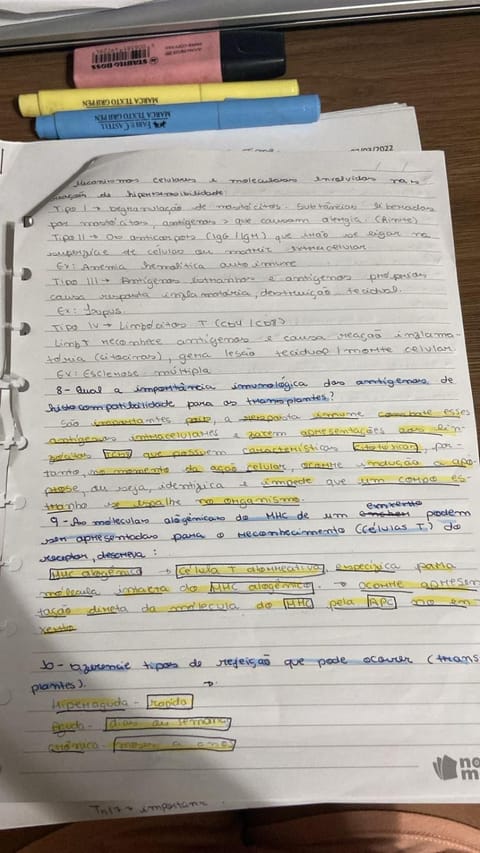 STABILO BOSS
MARCA TEXTO GRIFPEN
FABER-CASTELL
MARCA TEXTO GRIFPEN
/2022
Mecanismos celulares e moleculares involvidos nas
reação de hipersensibilidade:
Tipo I → Degranulação de mastócitos. Substâncias liberadas
por mastócitos, antígenos > que causam alergia: (Rinite)
Tipo II → Os anticorpos (IgG/IgM) que irão se ligar na
superfície de células ou matriz extracelular
Ex: Anemia hemolítica auto imune
Tipo III → Antígenos estranhos e antígenos próprios
causa resposta inflamatória, destruição tecidual.
Ex: Lupus.
Tipo IV → Linfócitos T (CD4/CD8).
Linf T reconhece antígenos e causa reação inflama-
tória (citocinas), gera lesão tecidual / morte celular.
Ex: Esclerose múltipla
8- Qual a importância imunológica dos antígenos de
histocompatibilidade para os transplantes?
São importantes pois, a resposta imune combate esses
antígenos intracelulares e fazem apresentações aos lin-
fócitos TCD8 que possuem características citotóxicas, por-
tanto, no momento da ação celular, ocorre indução a apo-
ptose, ou seja, identifica e impede que um corpo es-
tranho se espalhe no organismo.
9- As moléculas alogênicas do MHC de um enxerto podem
ser apresentadas para o reconhecimento (células T) do
receptor, descreva:
MHC alogênico → Célula T alorreativa, específica para
molécula intacta do MHC alogênico → ocorre apresen
tação direta da molécula do MHC pela APC no en
xerto
10- Diferencie tipos de rejeição que pode ocorrer (trans
plantes).
Hiperaguda - rápida
Aguda - dias ou semana
crônica - meses a ano
no
m
Th17 → importan